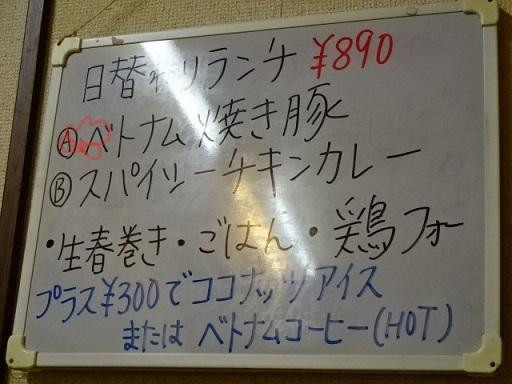 日替わりランチ ¥890
Ⓐベトナム焼き豚
Ⓑスパイシーチキンカレー
・生春巻き・ごはん・鶏フォー
プラス¥300でココナッツアイス
または ベトナムコーヒー(HOT)